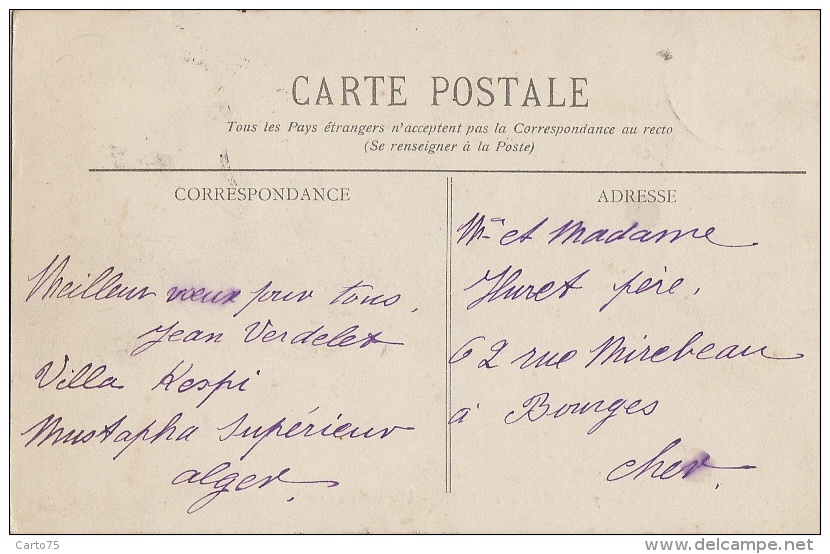 CARTE POSTALE
Tous les Pays étrangers n'acceptent pas la Correspondance au recto
(Se renseigner à la Poste)
CORRESPONDANCE
Meilleur vœux pour tous.
Jean Verdelet
Villa Kespi
Mustapha Supérieur
Alger.
ADRESSE
Mr et Madame
Huret père.
62 rue Mirebeau
à Bourges
Cher.
Carto75
www.delcampe.net